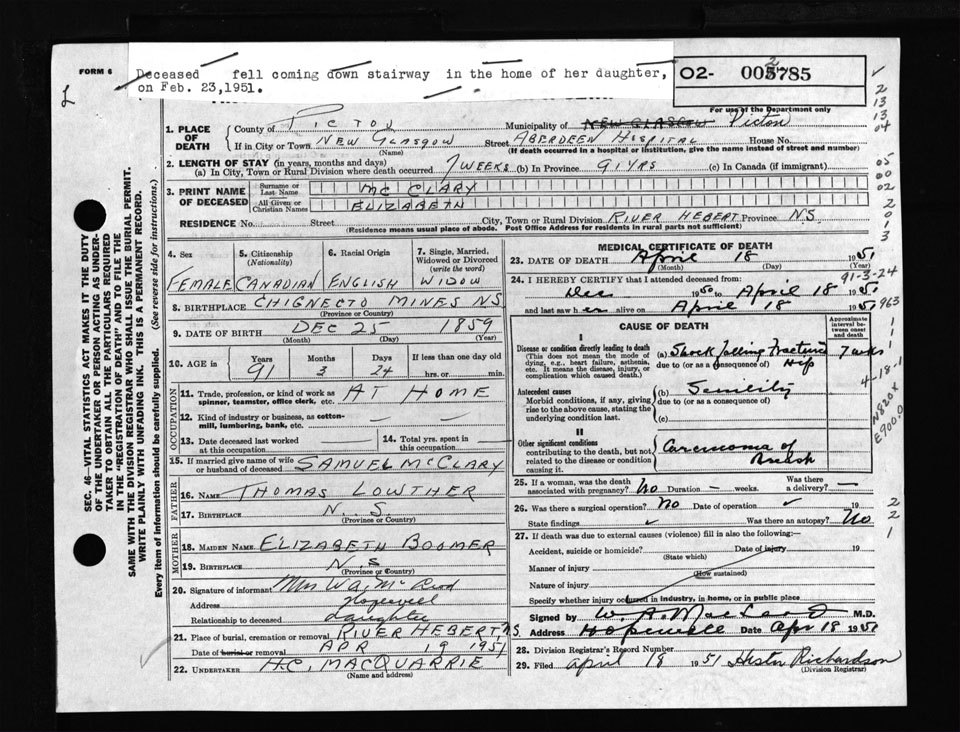 FORM 6
Deceased fell coming down stairway in the home of her daughter,
on Feb. 23,1951.
O2- 005785
For use of the Department only
1. PLACE OF DEATH
County of PICTOU Municipality of NEW GLASGOW Pictou
If in City or Town NEW GLASGOW Street ABERDEEN HOSPITAL House No.
(Name) (If death occurred in a hospital or institution, give name instead of street and number)
2. LENGTH OF STAY (in years, months and days)
(a) In City, Town or Rural Division where death occurred 7 WEEKS (b) In Province 91 YRS (c) In Canada (if immigrant)
3. PRINT NAME OF DECEASED
Surname or Last Name MC CLARY
All Given or Christian Names ELIZABETH
RESIDENCE No. Street City, Town or Rural Division RIVER HEBERT Province N.S.
(Residence means usual place of abode. Post Office Address for residents in rural parts not sufficient)
4. Sex
FEMALE
5. Citizenship (Nationality)
CANADIAN
6. Racial Origin
ENGLISH
7. Single, Married, Widowed or Divorced (write the word)
WIDOW
8. BIRTHPLACE CHIGNECTO MINES NS
(Province or Country)
9. DATE OF BIRTH DEC 25 1859
(Month) (Day) (Year)
10. AGE in Years Months Days If less than one day old
91 3 24 hrs. or min.
OCCUPATION
11. Trade, profession, or kind of work as spinner, teamster, office clerk, etc. AT HOME
12. Kind of industry or business, as cotton-mill, lumbering, bank, etc.
13. Date deceased last worked at this occupation
14. Total yrs. spent in this occupation
15. If married give name of wife or husband of deceased SAMUEL MCCLARY
FATHER
16. NAME THOMAS LOWTHER
17. BIRTHPLACE N.S.
(Province or Country)
MOTHER
18. MAIDEN NAME ELIZABETH BOOMER
19. BIRTHPLACE N.S
(Province or Country)
20. Signature of informant Mrs W.A. McLeod
Address Hopewell
Relationship to deceased daughter
21. Place of burial, cremation or removal RIVER HEBERT, N.S.
Date of burial or removal APR 19 1951
22. UNDERTAKER H.C. MACQUARRIE
(Name and address)
MEDICAL CERTIFICATE OF DEATH
23. DATE OF DEATH April 18 1951
(Month) (Day) (Year)
91-3-24
24. I HEREBY CERTIFY that I attended deceased from:
Dec 1950 to April 18 1951
and last saw her alive on April 18 1951
CAUSE OF DEATH
Approximate interval between onset and death
I
Disease or condition directly leading to death
(This does not mean the mode of dying, e.g., heart failure, asthenia, etc. It means the disease, injury, or complication which caused death.)
(a) Shock falling Fractured Hip 7 wks
due to (or as a consequence of)
Antecedent causes
Morbid conditions, if any, giving rise to the above cause, stating the underlying condition last.
(b) Senility
due to (or as a consequence of)
(c)
II
Other significant conditions
contributing to the death, but not related to the disease or condition causing it.
Carcinoma of Breast
963
4-18-1
N820x
E900.0
25. If a woman, was the death associated with pregnancy? No Duration — weeks. Was there a delivery? —
26. Was there a surgical operation? No Date of operation 19
State findings Was there an autopsy? No
27. If death was due to external causes (violence) fill in also the following:—
Accident, suicide or homicide? Date of injury 19
(State which)
Manner of injury
(How sustained)
Nature of injury
Specify whether injury occurred in industry, in home, or in public place
Signed by W. A. MacLeod M.D.
Address Hopewell Date Apr 18 1951
28. Division Registrar's Record Number
29. Filed April 18 1951 Hester Richardson
(Division Registrar)
SEC. 46—VITAL STATISTICS ACT MAKES IT THE DUTY
OF THE UNDERTAKER OR PERSON ACTING AS UNDER-
TAKER TO OBTAIN ALL THE PARTICULARS REQUIRED
IN THE "REGISTRATION OF DEATH" AND TO FILE THE
SAME WITH THE DIVISION REGISTRAR WHO SHALL ISSUE THE BURIAL PERMIT.
WRITE PLAINLY WITH UNFADING INK. THIS IS A PERMANENT RECORD.
Every item of information should be carefully supplied. (See reverse side for instructions.)